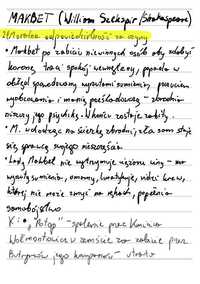 MAKBET (William Szekspir/Shakespeare)
2) Moralna odpowiedzialność za czyny
• Makbet po zabiciu niewinnych osób aby zdobyć
koronę, traci spokój wewnętrzny, popada w
obłęd spowodowany wyrzutami sumienia, poczuciem
wyobcowania i manią prześladowczą - zbrodnia
niszczy jego psychikę. W końcu zostaje zabity.
• M. wchodząc na ścieżkę zbrodni, sam staje
się sprawcą swojego nieszczęścia
• Lady Makbet nie wytrzymuje ciężaru winy - ma
wyrzuty sumienia, omamy, lunatykuje, widzi krew,
której nie może zmyć na rękach, popełnia
samobójstwo
K: • "Potop" - spalenie przez Kmicica
Wołmontowicz w zemście za zabicie przez
Butrymów jego kompanów - utrata